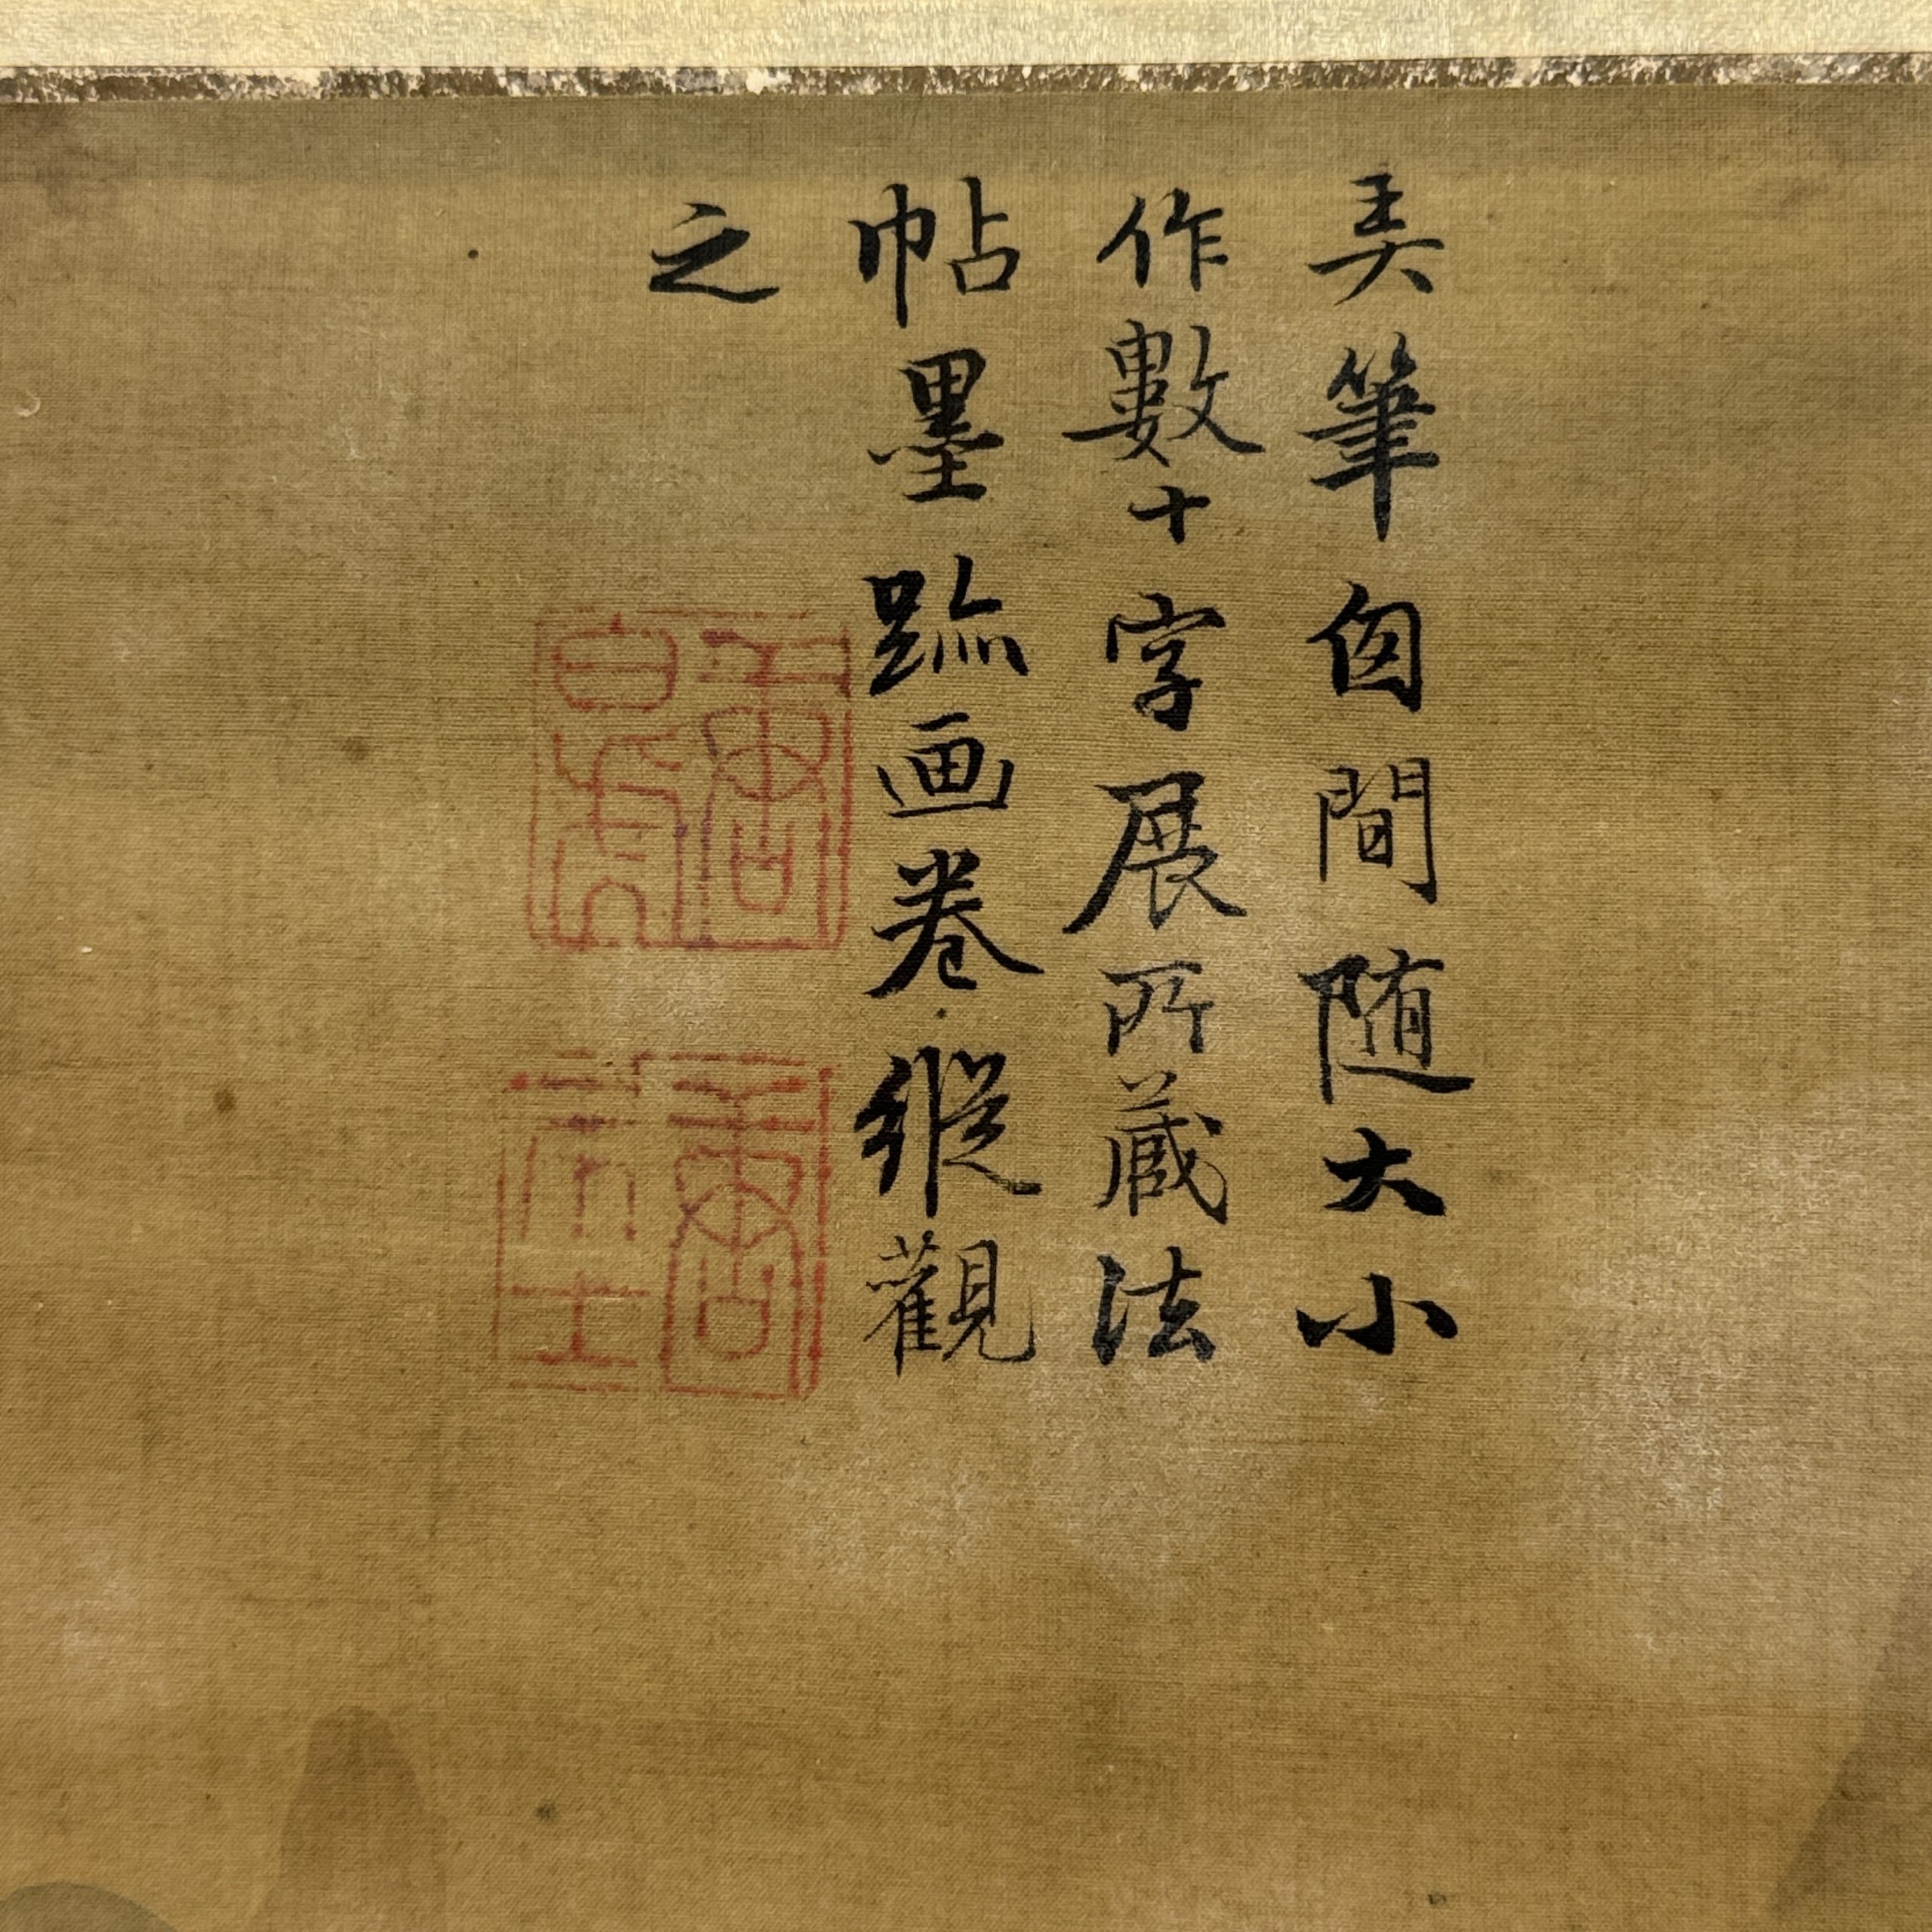 弄筆囱間随大小
作數十字展所蔵法
帖墨跡画卷縱觀
之